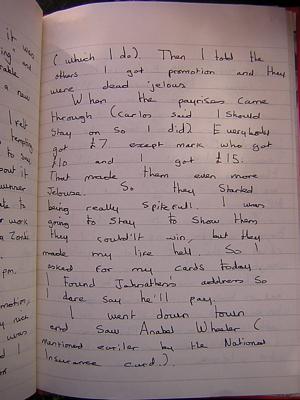 it was
ing and
rable
a new
I felt
tempting
to say.
bout it
unner
ate to
r work
pm.
motion,
ly much
I was
nd I
(which I do). Then I told the
others I got promotion and they
were dead jelous
When the payrises came
through (Carlos said I should
stay on so I did) Everybody
got £7. except mark who got
£10 and I got £15.
That made them even more
Jelouse. So they started
being really spitefull. I was
going to stay to show them
they could'nt win, but they
made my life hell. So I
asked for my cards today.
I found Johnathens address so
I dare say he'll pay.
I went down town
and saw Anabel Wheeler (
mentioned eariler by the National
Insurance card.).